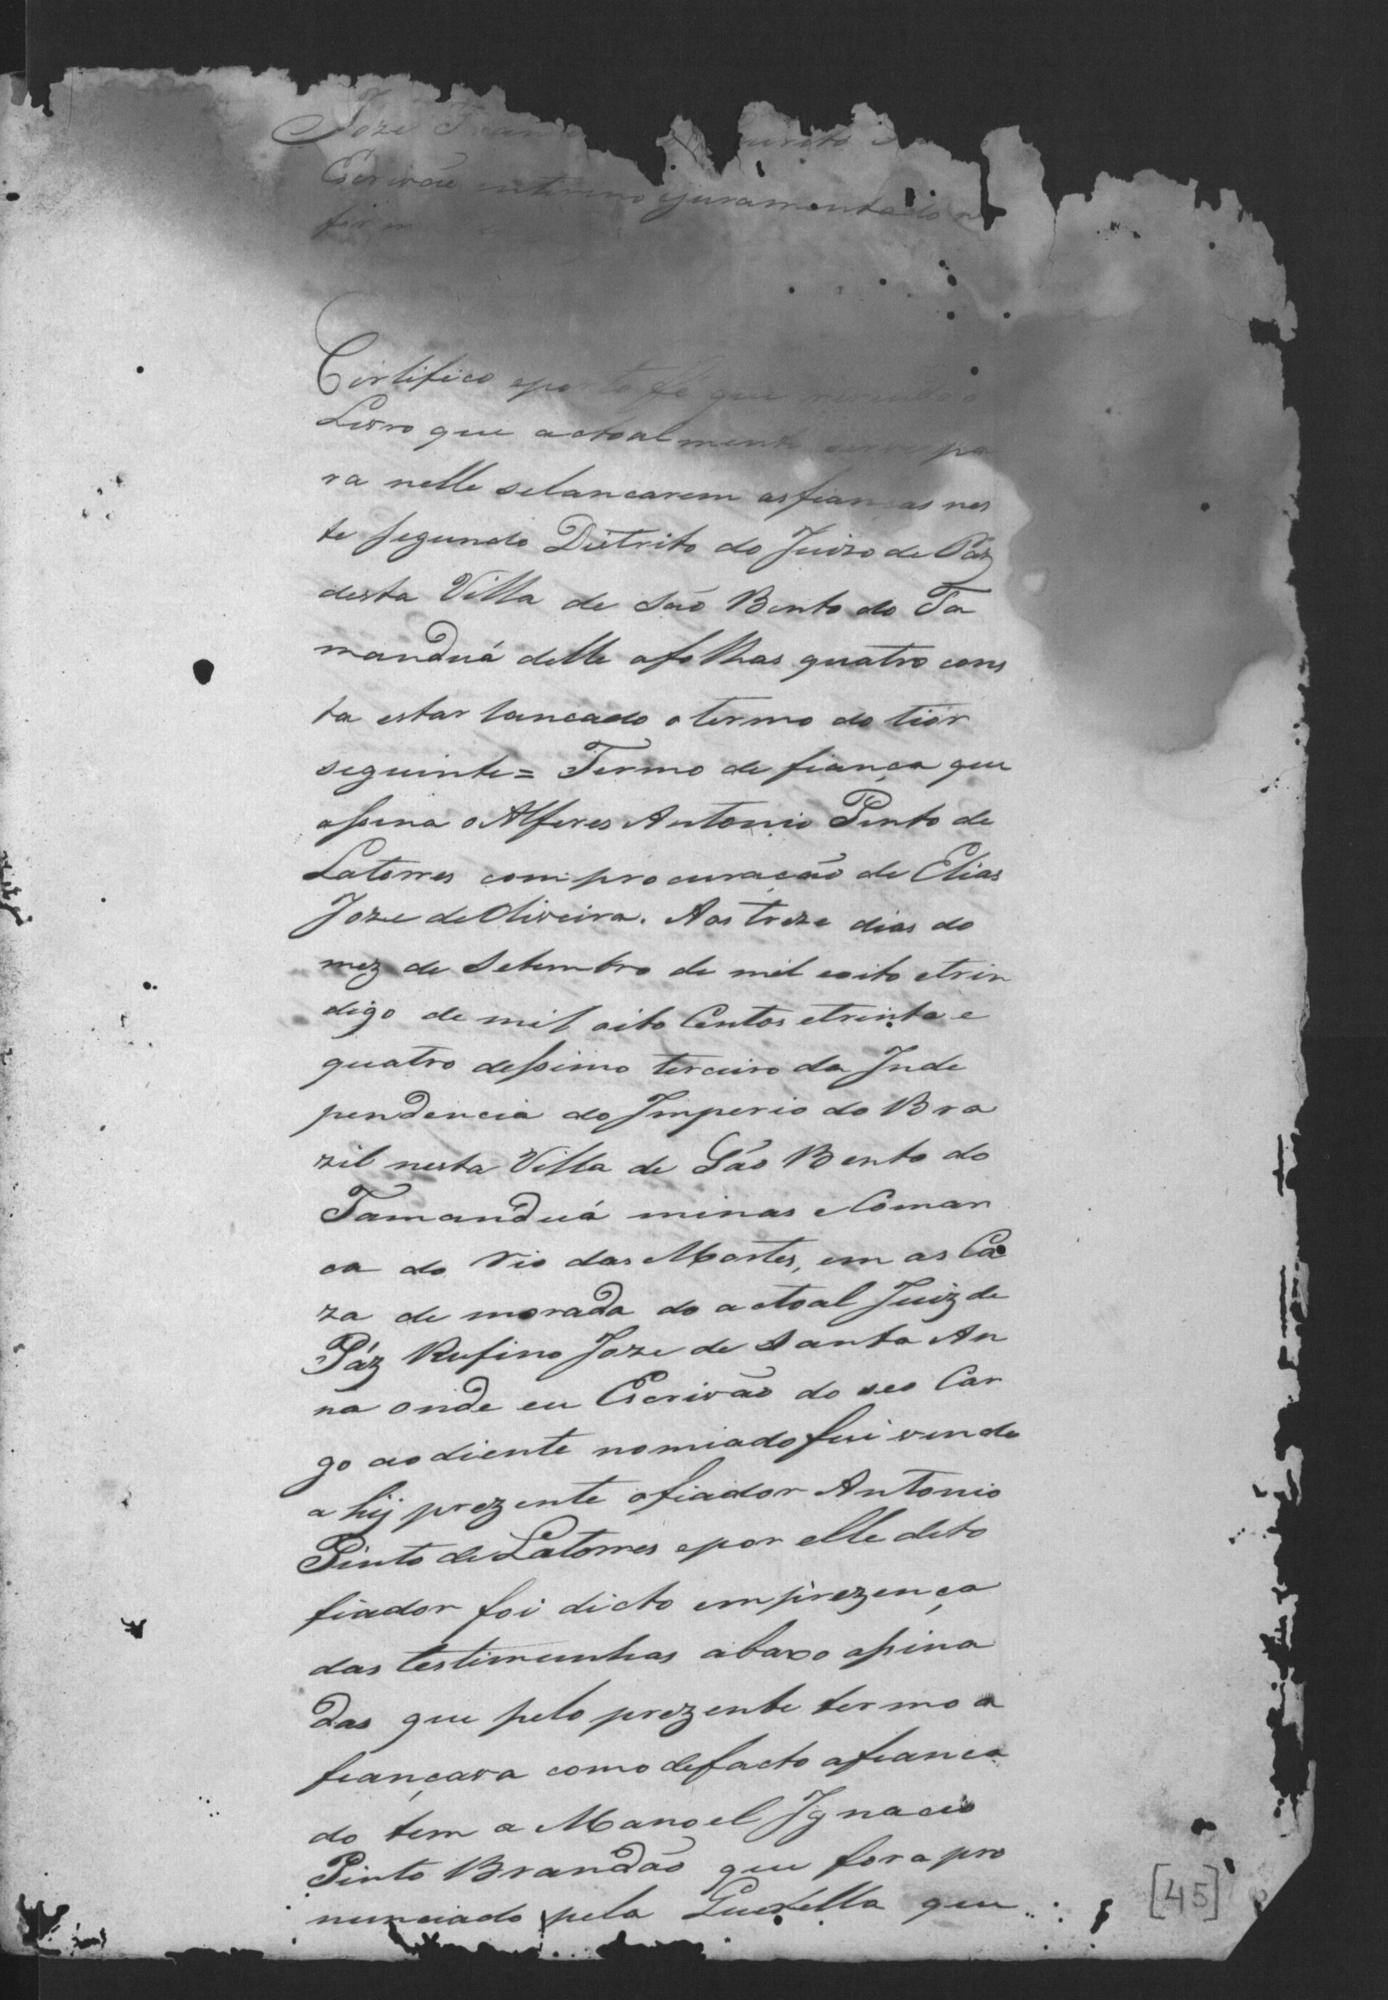 Joze
Escrivão interino ejuramentado
Certifico eporto fé que
Livro que actoalmente serve pa
ra nelle selancarem asfiancas nes
te segundo Destrito do Juizo de Páz
desta Villa de São Bento do Ta
manduá delle afolhas quatro cons
ta estar lancado otermo do tior
seguinte = Termo de fiança que
assina o Alferes Antonio Pinto de
Latorres com procuracão de Elias
Joze de Oliveira. Aos treze dias do
mez de Setembro de mil eoito etrin
digo de mil oito Centos etrinta e
quatro dessimo terceiro da Inde
pendencia do Imperio do Bra
zil nesta Villa de São Bento do
Tamanduá minas eComar
ca do rio das Mortes, em as Ca
za de morada do actoal Juiz de
Páz Rufino Joze de Santa An
na onde eu Escrivão do seo Car
go aodiente nomiado fui vindo
ahij prezente ofiador Antonio
Pinto de Latorres epor elle dito
fiador foi dicto em prezença
das testimunhas abaxo assina
das que pelo prezente termo a
fiançava como defacto afianca
do tem a Manoel Ignacio
Pinto Brandão que fora pro
nunciado pela Quexella que
[45]